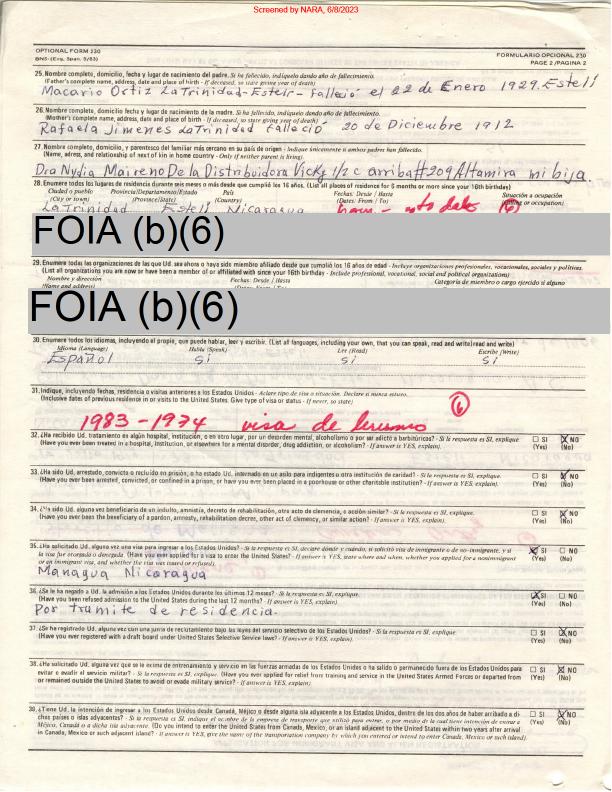 Screened by NARA, 6/8/2023
OPTIONAL FORM 230
BNS- (Eng, Span. 5/83)
FORMULARIO OPCIONAL 230
PAGE 2 /PAGINA 2
25. Nombre completo, domicilio, fecha y lugar de nacimiento del padre. Si ha fallecido, indíquelo dando año de fallecimiento.
(Father's complete name, address, date and place of birth - If deceased, so state giving year of death)
Macario Ortiz La Trinidad-Estelí- Falleció el 22 de Enero 1929. Estelí
26. Nombre completo, domicilio, fecha y lugar de nacimiento de la madre. Si ha fallecido, indíquelo dando año de fallecimiento.
(Mother's complete name, address, date and place of birth - If deceased, so state giving year of death)
Rafaela Jimenes La Trinidad falleció 20 de Diciembre 1912
27. Nombre completo, domicilio, y parentesco del familiar más cercano en su país de origen - Indíquese únicamente si ambos padres han fallecido.
(Name, adress, and relationship of next of kin in home country - Only if neither parent is living).
Dra Nydia Maireno De la Distribuidora Vicky 1/2 c arriba #209 Altamira mi hija.
28. Enumere todos los lugares de residencia durante seis meses o más desde que cumplió los 16 años. (List all places of residence for 6 months or more since your 16th birthday)
Ciudad o pueblo Provincia/Departamento/Estado País Fechas: Desde / Hasta Situación u ocupación
(City or town) (Province/State) (Country) (Dates: From / To) or occupation)
La Trinidad Estelí Nicaragua (6)
FOIA (b)(6)
29. Enumere todas las organizaciones de las que Ud. sea ahora o haya sido miembro afiliado desde que cumplió los 16 años de edad - Incluye organizaciones profesionales, vocacionales, sociales y políticas.
(List all organizations you are now or have been a member of or affiliated with since your 16th birthday - Include professional, vocational, social and political organizations)
Nombre y dirección Fechas: Desde / Hasta Categoría de miembro o cargo ejercido si alguno
(Name and address)
FOIA (b)(6)
30. Enumere todos los idiomas, incluyendo el propio, que puede hablar, leer y escribir. (List all languages, including your own, that you can speak, read and write)read and write)
Idioma (Language) Habla (Speak) Lee (Read) Escribe (Write)
Español Si Si Si
31. Indique, incluyendo fechas, residencia o visitas anteriores a los Estados Unidos - Aclare tipo de visa o situación. Declare si nunca estuvo.
(Inclusive dates of previous residence in or visits to the United States. Give type of visa or status - If never, so state)
(6)
1983 - 1974 visa de
32. ¿Ha recibido Ud. tratamiento en algún hospital, institución, o en otro lugar, por un desorden mental, alcoholismo o por ser adicto a barbitúricos? - Si la respuesta es SI, explique.
(Have you ever been treated in a hospital, institution, or elsewhere for a mental disorder, drug addiction, or alcoholism? - If answer is YES, explain).
☐ SI ☒ NO
(Yes) (No)
33. ¿Ha sido Ud. arrestado, convicto o recluído en prisión; o ha estado Ud. internado en un asilo para indigentes u otra institución de caridad? - Si la respuesta es SI, explique.
(Have you ever been arrested, convicted or confined in a prison, or have you ever been placed in a poorhouse or other charitable institution? - If answer is YES, explain).
☐ SI ☒ NO
(Yes) (No)
34. ¿Ha sido Ud. alguna vez beneficiario de un indulto, amnistía, decreto de rehabilitación, otro acto de clemencia, o acción similar? - Si la respuesta es SI, explique.
(Have you ever been the beneficiary of a pardon, amnesty, rehabilitation decree, other act of clemency, or similar action? - If answer is YES, explain).
☐ SI ☒ NO
(Yes) (No)
35. ¿Ha solicitado Ud. alguna vez una visa para ingresar a los Estados Unidos? - Si la respuesta es SI, declare dónde y cuándo, si solicitó visa de inmigrante o de no-inmigrante, y si
la visa fue otorgada o denegada. (Have you ever applied for a visa to enter the United States? - If answer is YES, state where and when, whether you applied for a nonimmigrant
or an immigrant visa, and whether the visa was issued or refused).
☒ SI ☐ NO
(Yes) (No)
Managua Nicaragua
36. ¿Se le ha negado a Ud. la admisión a los Estados Unidos durante los últimos 12 meses? - Si la respuesta es SI, explique.
(Have you been refused admission to the United States during the last 12 months? - If answer is YES, explain).
☒ SI ☐ NO
(Yes) (No)
Por tramite de residencia.
37. ¿Se ha registrado Ud. alguna vez con una junta de reclutamiento bajo las leyes del servicio selectivo de los Estados Unidos? - Si la respuesta es SI, explique.
(Have you ever registered with a draft board under United States Selective Service laws? - If answer is YES, explain).
☐ SI ☒ NO
(Yes) (No)
38. ¿Ha solicitado Ud. alguna vez que se le exima de entrenamiento y servicio en las fuerzas armadas de los Estados Unidos o ha salido o permanecido fuera de los Estados Unidos para
evitar o evadir el servicio militar? - Si la respuesta es SI, explique. (Have you ever applied for relief from training and service in the United States Armed Forces or departed from
or remained outside the United States to avoid or evade military service? - If answer is YES, explain).
☐ SI ☒ NO
(Yes) (No)
39. ¿Tiene Ud. la intención de ingresar a los Estados Unidos desde Canadá, Méjico o desde alguna isla adyacente a los Estados Unidos, dentro de los dos años de haber arribado a di-
chos países o islas adyacentes? - Si la respuesta es SI, indique el nombre de la empresa de transporte que utilizó para entrar, o por medio de la cual tiene intención de entrar a
Méjico, Canadá o a dicha isla adyacente. (Do you intend to enter the United States from Canada, Mexico, or an island adjacent to the United States within two years after arrival
in Canada, Mexico or such adjacent island? - If answer is YES, give the name of the transportation company by which you entered or intend to enter Canada, Mexico or such island).
☐ SI ☒ NO
(Yes) (No)